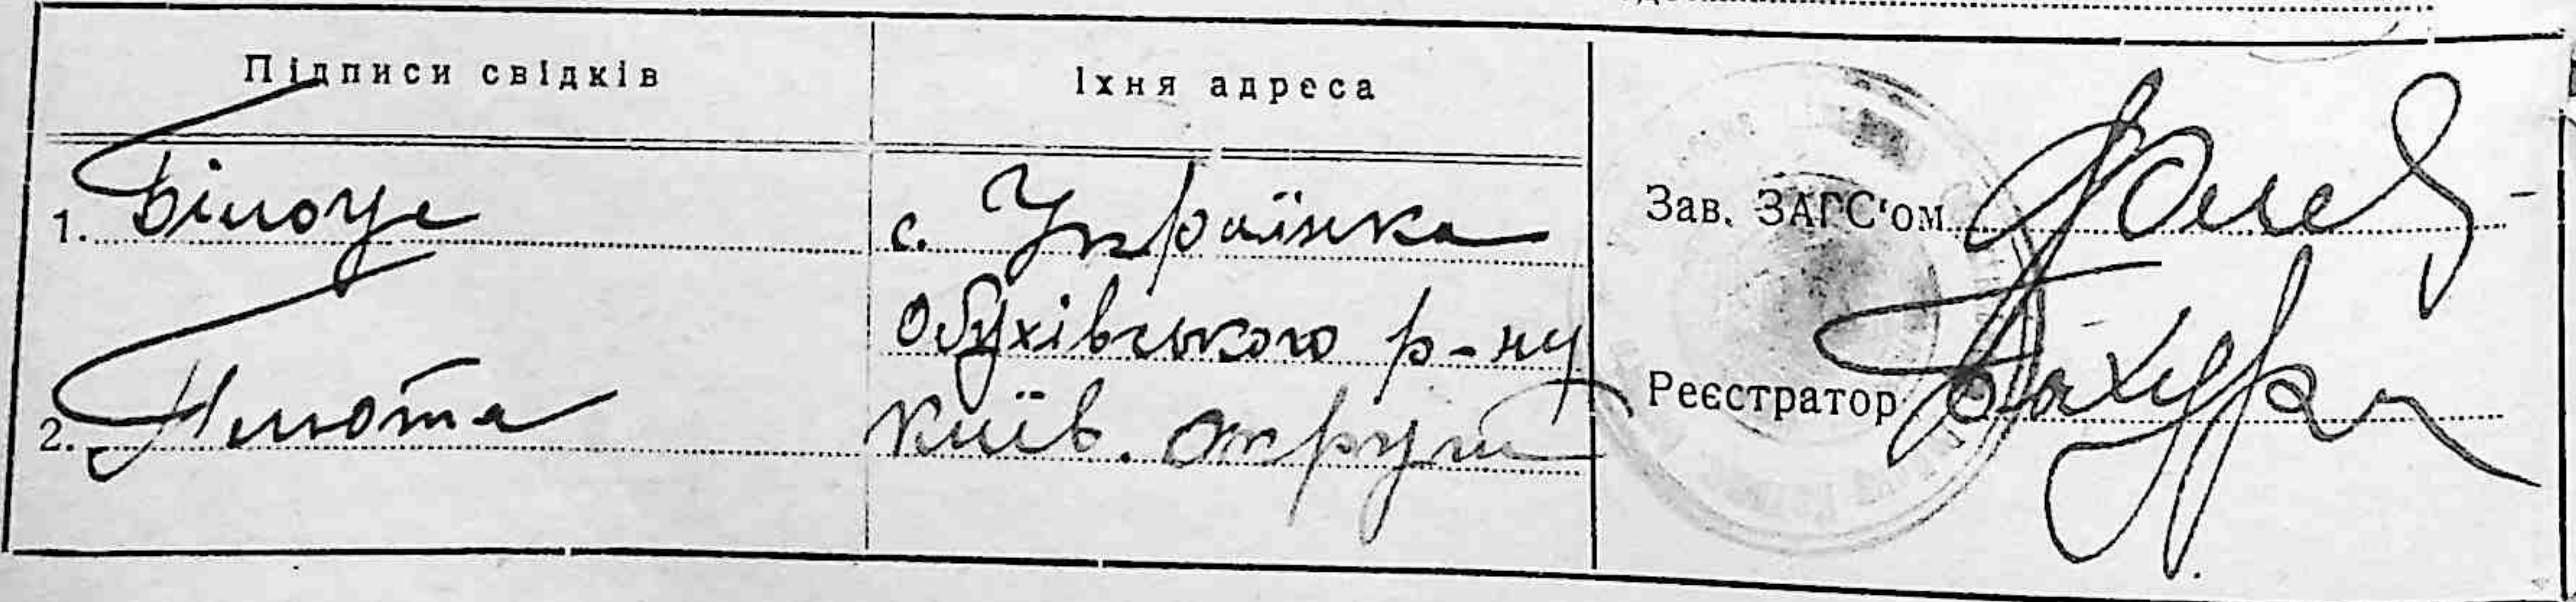 Підписи свідків
Їхня адреса
1. Білоус
с. Українка
Обухівського р-ну
2.
Київ. округи
Зав. ЗАГС'ом
Реєстратор